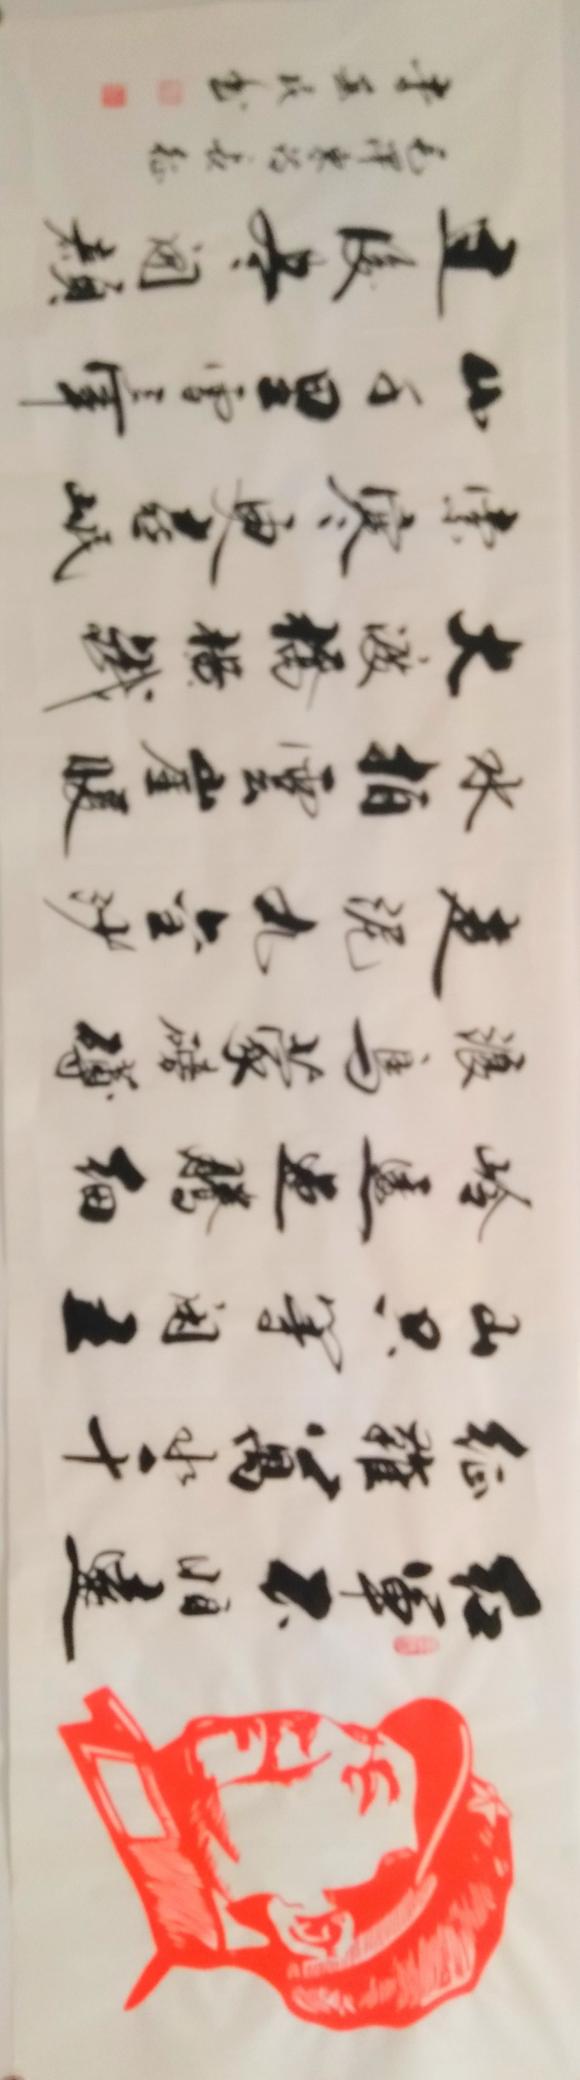 紅軍不怕遠
征難萬水千
山只等閑五
嶺逶迤騰細
浪烏蒙磅礴
走泥丸金沙
水拍雲崖暖
大渡橋橫鐵
索寒更喜岷
山千里雪三軍
過後尽開顏
毛澤東詩長征
李民書